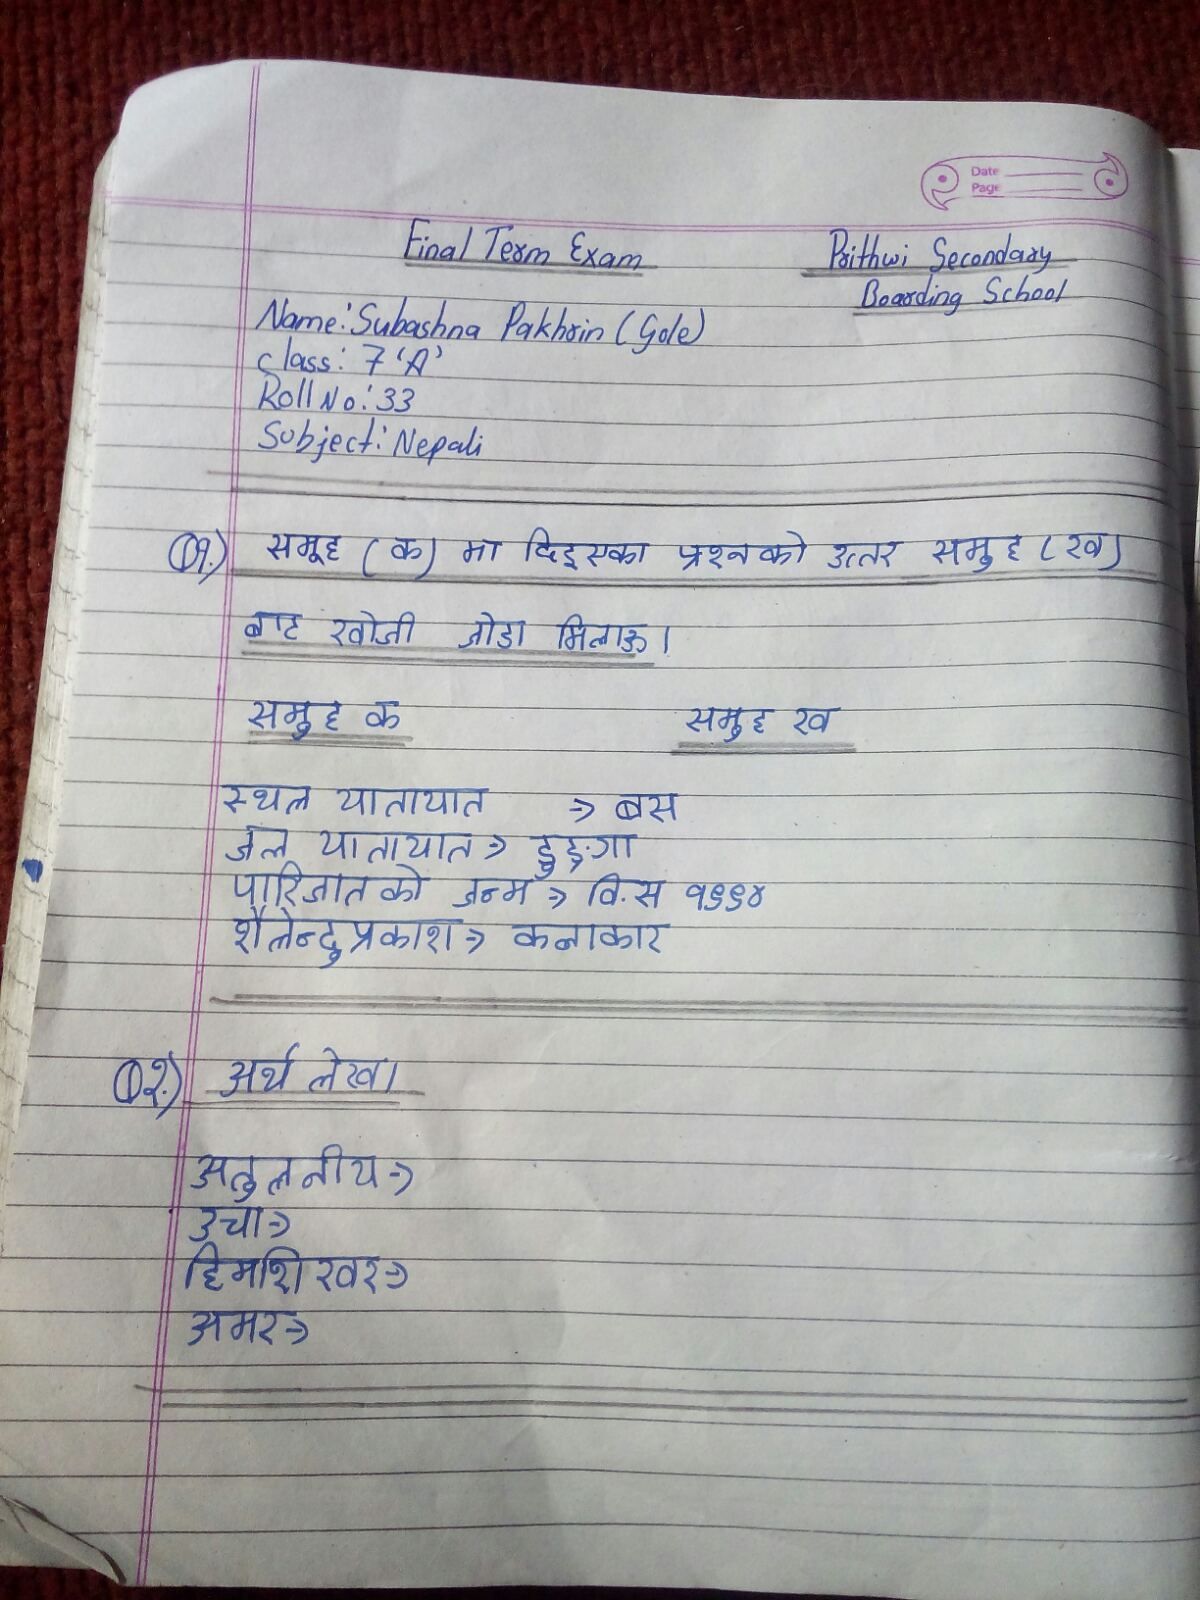 Date
Page
Final Term Exam
Prithwi Secondary
Boarding School
Name: Subashna Pakhrin (Gole)
class: 7 'A'
Roll No: 33
Subject: Nepali
Q१.) समूह (क) मा दिइएका प्रश्नको उत्तर समुह (ख)
बाट खोजी जोडा मिलाऊ।
समुह क
समुह ख
स्थल यातायात => बस
जल यातायात => डुङ्गा
पारिजातको जन्म => वि.स १९९४
शैलेन्दुप्रकाश => कलाकार
Q२.) अर्थ लेख।
अतुलनीय =>
उचा =>
हिमशिखर =>
अमर =>